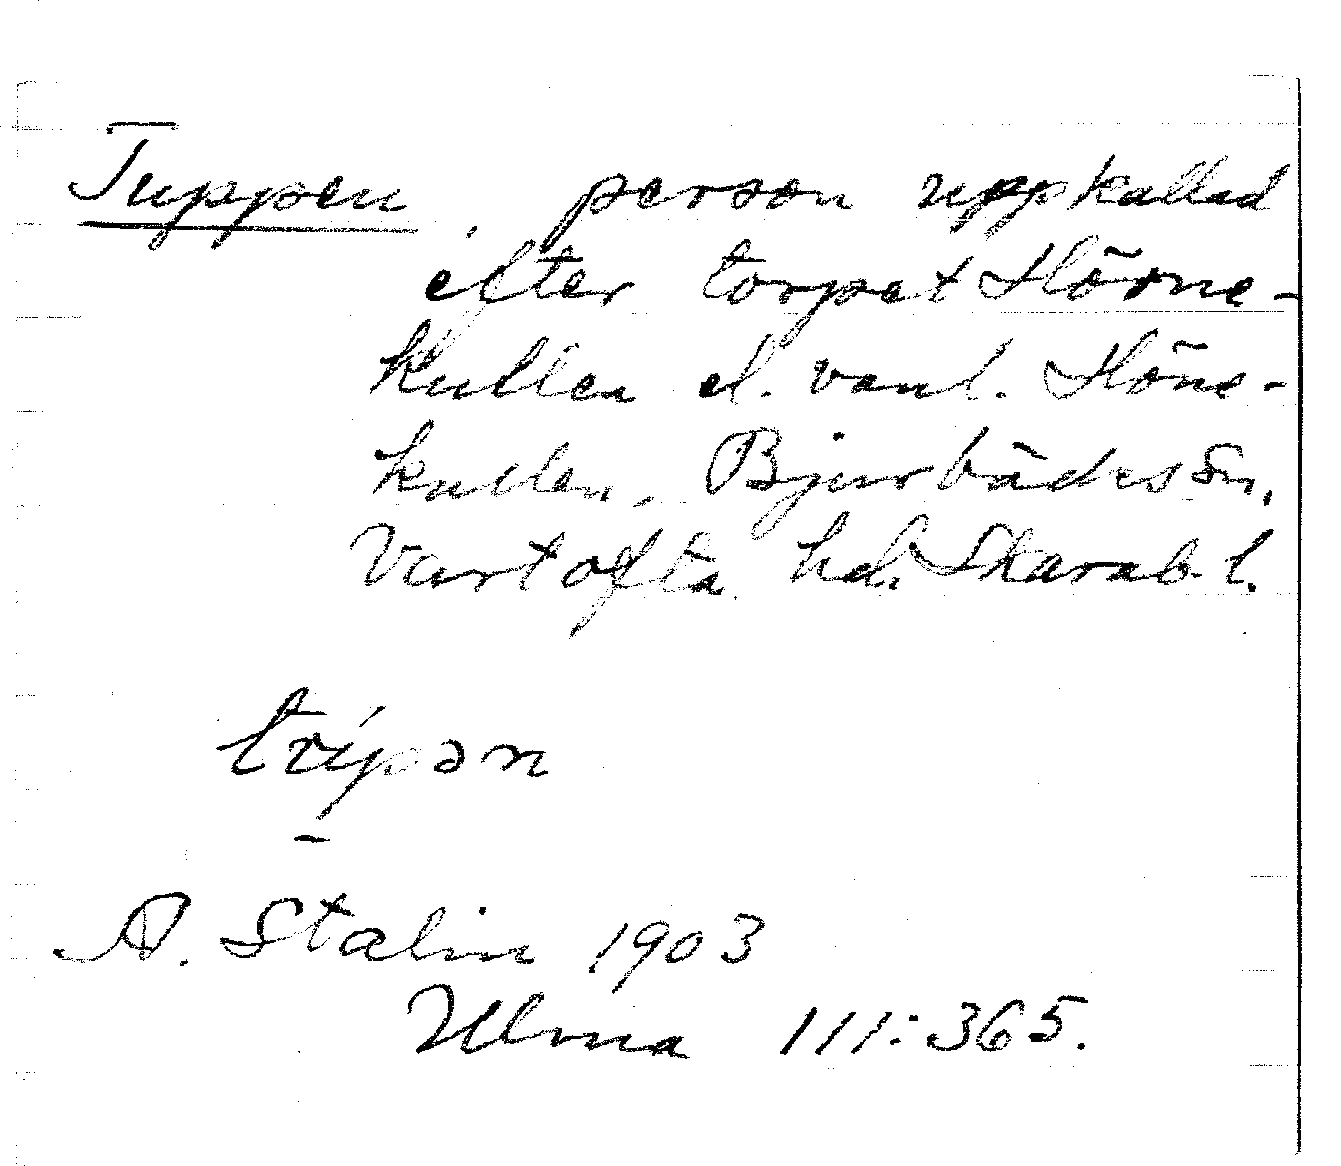 Tuppen, person uppkallad
efter torpet Hörne-
kullen el. vanl. Höne-
kullen. Bjurbäcks sn,
Vartofta hd. Skarab. l.
A. Stalin 1903
Ulma 111:365.